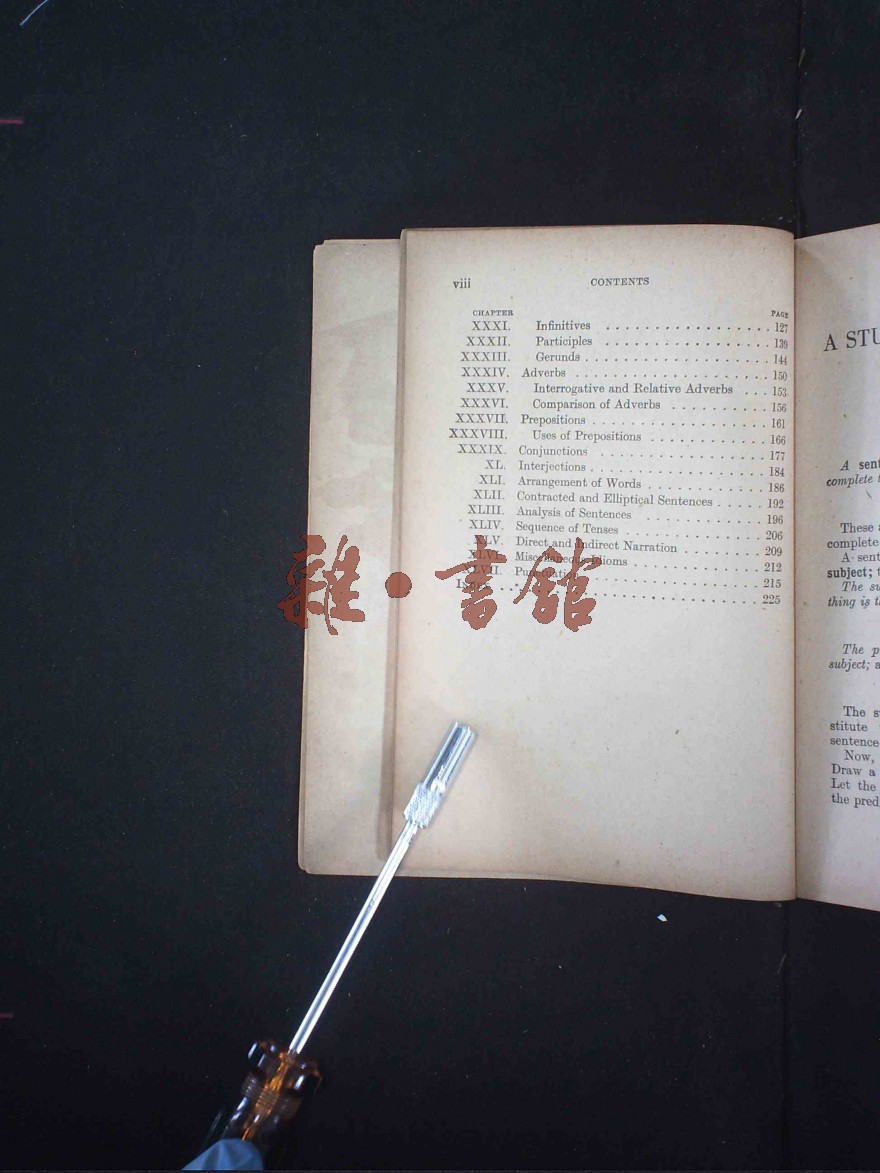 viii CONTENTS
CHAPTER PAGE
XXXI. Infinitives . . . . . . . . . . . . . . . . . 127
XXXII. Participles . . . . . . . . . . . . . . . . . 139
XXXIII. Gerunds . . . . . . . . . . . . . . . . . . . 144
XXXIV. Adverbs . . . . . . . . . . . . . . . . . . . . 150
XXXV. Interrogative and Relative Adverbs . . . 153
XXXVI. Comparison of Adverbs . . . . . . . . . . 156
XXXVII. Prepositions . . . . . . . . . . . . . . . . . . 161
XXXVIII. Uses of Prepositions . . . . . . . . . . . . 166
XXXIX. Conjunctions . . . . . . . . . . . . . . . . . 177
XL. Interjections . . . . . . . . . . . . . . . . . . 184
XLI. Arrangement of Words . . . . . . . . . . . . 186
XLII. Contracted and Elliptical Sentences . . . . . 192
XLIII. Analysis of Sentences . . . . . . . . . . . . 196
XLIV. Sequence of Tenses . . . . . . . . . . . . . . 206
XLV. Direct and Indirect Narration . . . . . . . . 209
XLVI. Miscellaneous Idioms . . . . . . . . . . . . . 212
XLVII. Punctuation . . . . . . . . . . . . . . . . . . 215
Index . . . . . . . . . . . . . . . . . . . . . . . . 225
雜·書館
A STU
A sent
complete t
These a
complete
A sent
subject; t
The su
thing is t
The p
subject; a
The s
stitute
sentence
Now,
Draw a
Let the
the pred